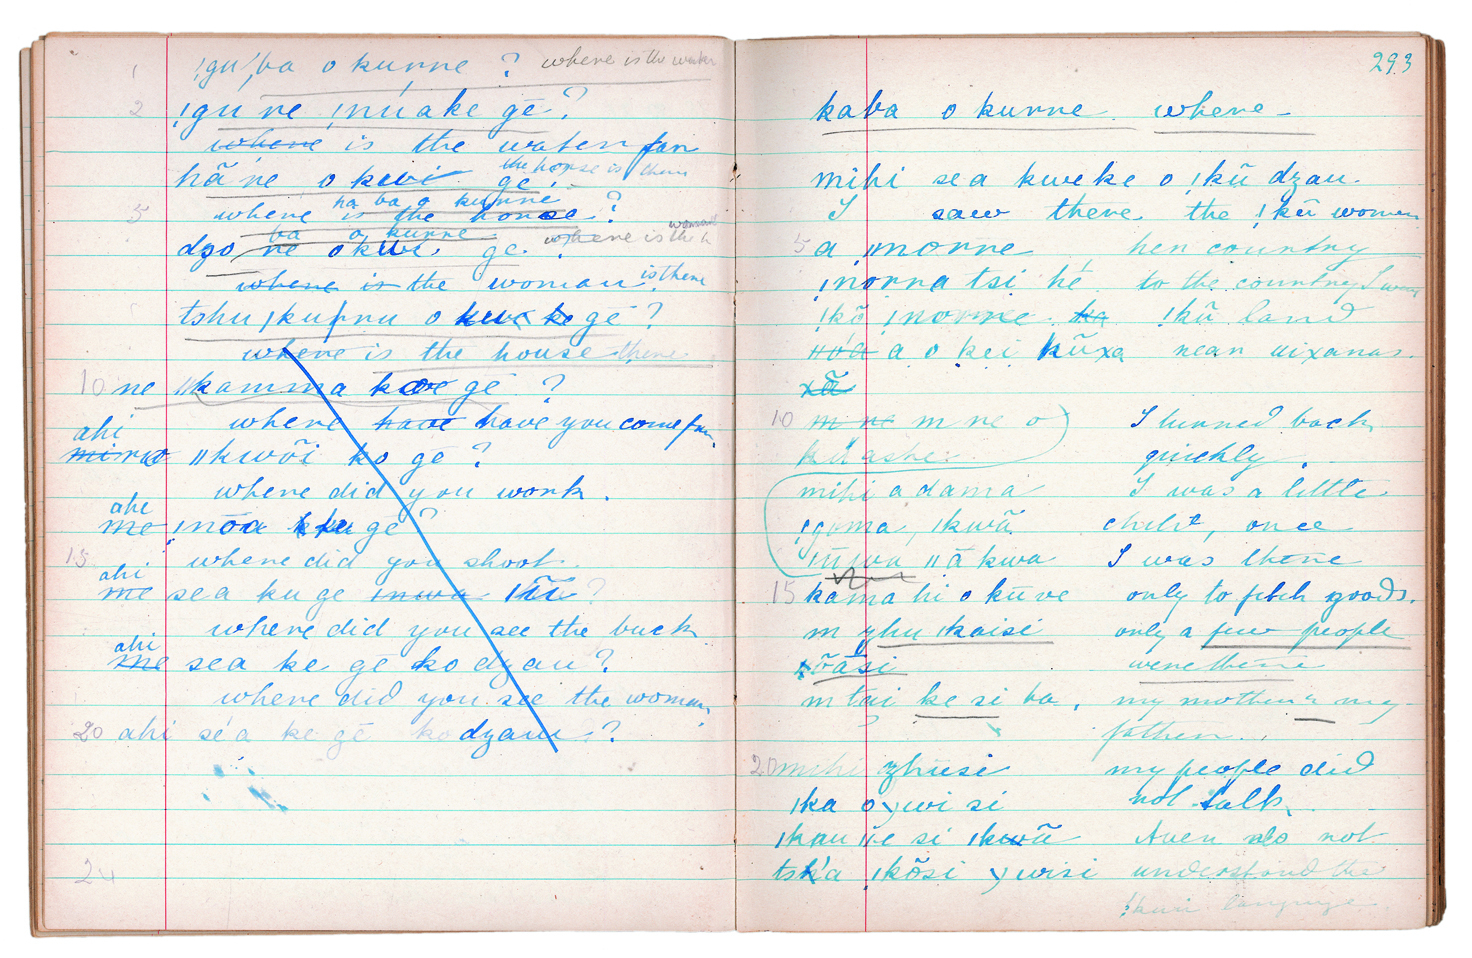 1 ǃgu ba o kurre ? where is the water
2 ǃgu re ǀnuake gē ?
where is the water far
hã re o kwi gē ! the horse is there
ha ba o kurre
5 where is the horse ?
ba o kurre
dzo re okwi ge. ? where is the woman
where is the woman is there
tshu ǀku nu o kwe ke gē ?
where is the house there
10 ne ǁkamma koe gē ?
where have have you come from
ahi
ǁkwõi ko gē ?
where did you work.
ahe
me ǀnōa gē ?
15 where did you shoot.
ahi
me sea ku ge ?
where did you see the buck
ahi
me sea ke gē ko dzau ?
where did you see the woman
20 ahi séa ke gē ko dzau ?
24
293
kaba o kurre where
mihi sea kweke o ǃkũ dzau.
I saw there the ǃkũ women
5 a ǀnorre her country
ǀnorra tsi hé to the country I was
ǃkõ ǀnorre ka ǃkũ land
a o kei kũxa near uixanas.
xã
10 m re m re o I turned back
quickly.
mihi a dama I was a little
ǀgoma, ǀkwã child, once
ǁãkwa I was there
15 kama hi o kūve only to fetch goods.
m zhu ǀkaisi only a few people
õãsi were there
m tai ke si ba, my mother & my
father.
20 mihi zhūsi my people did
ǀka o wi si not talk.
ǀkau ǁe si ǀkwã Auen do not
tsḱa ǀkõsi wisi understand the
ǃkari language